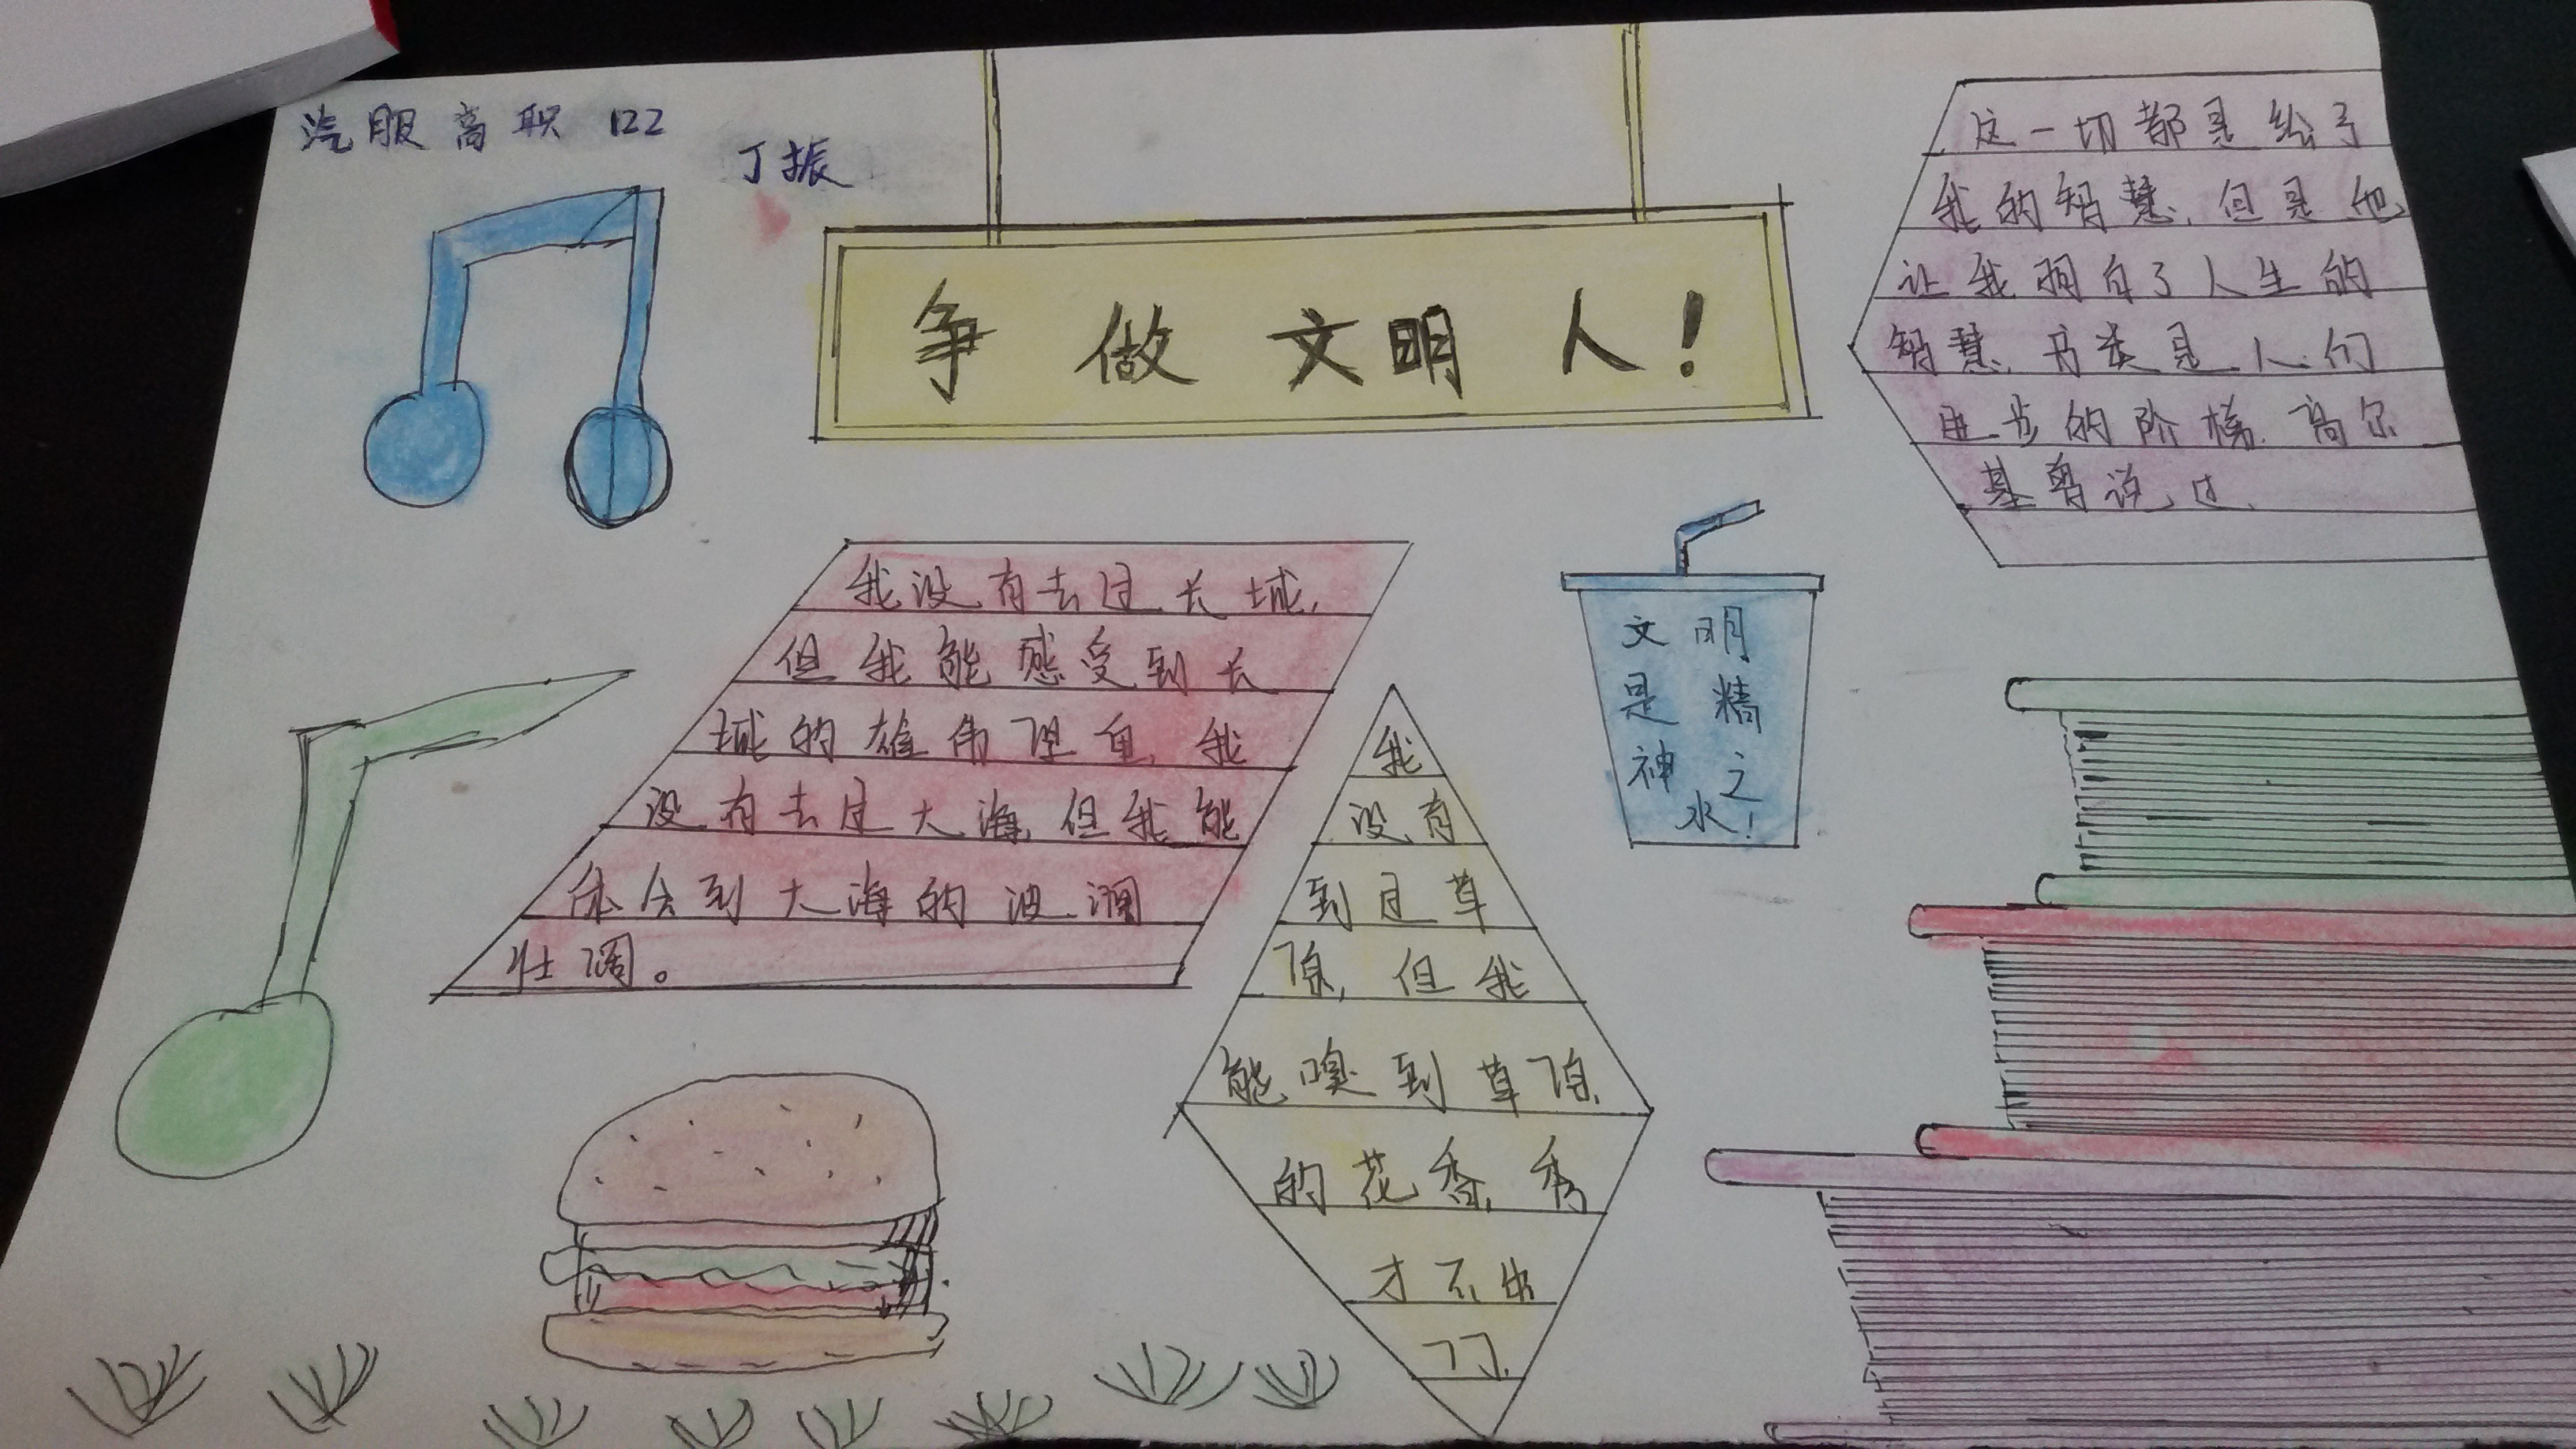 汽服高职 122
丁振
争做文明人!
这一切都是给了
我的智慧,但是他
让我明白了人生的
智慧,书类是人们
进步的阶梯,高尔
基曾说过,
我没有去过长城,
但我能感受到长
城的雄伟
我
没有去过大海,但我能
体会到大海的波澜
壮阔。
文明
是精
神之
水!
我
没有
到过草
原,但我
能嗅到草原
的花香,秀
才不出
门,